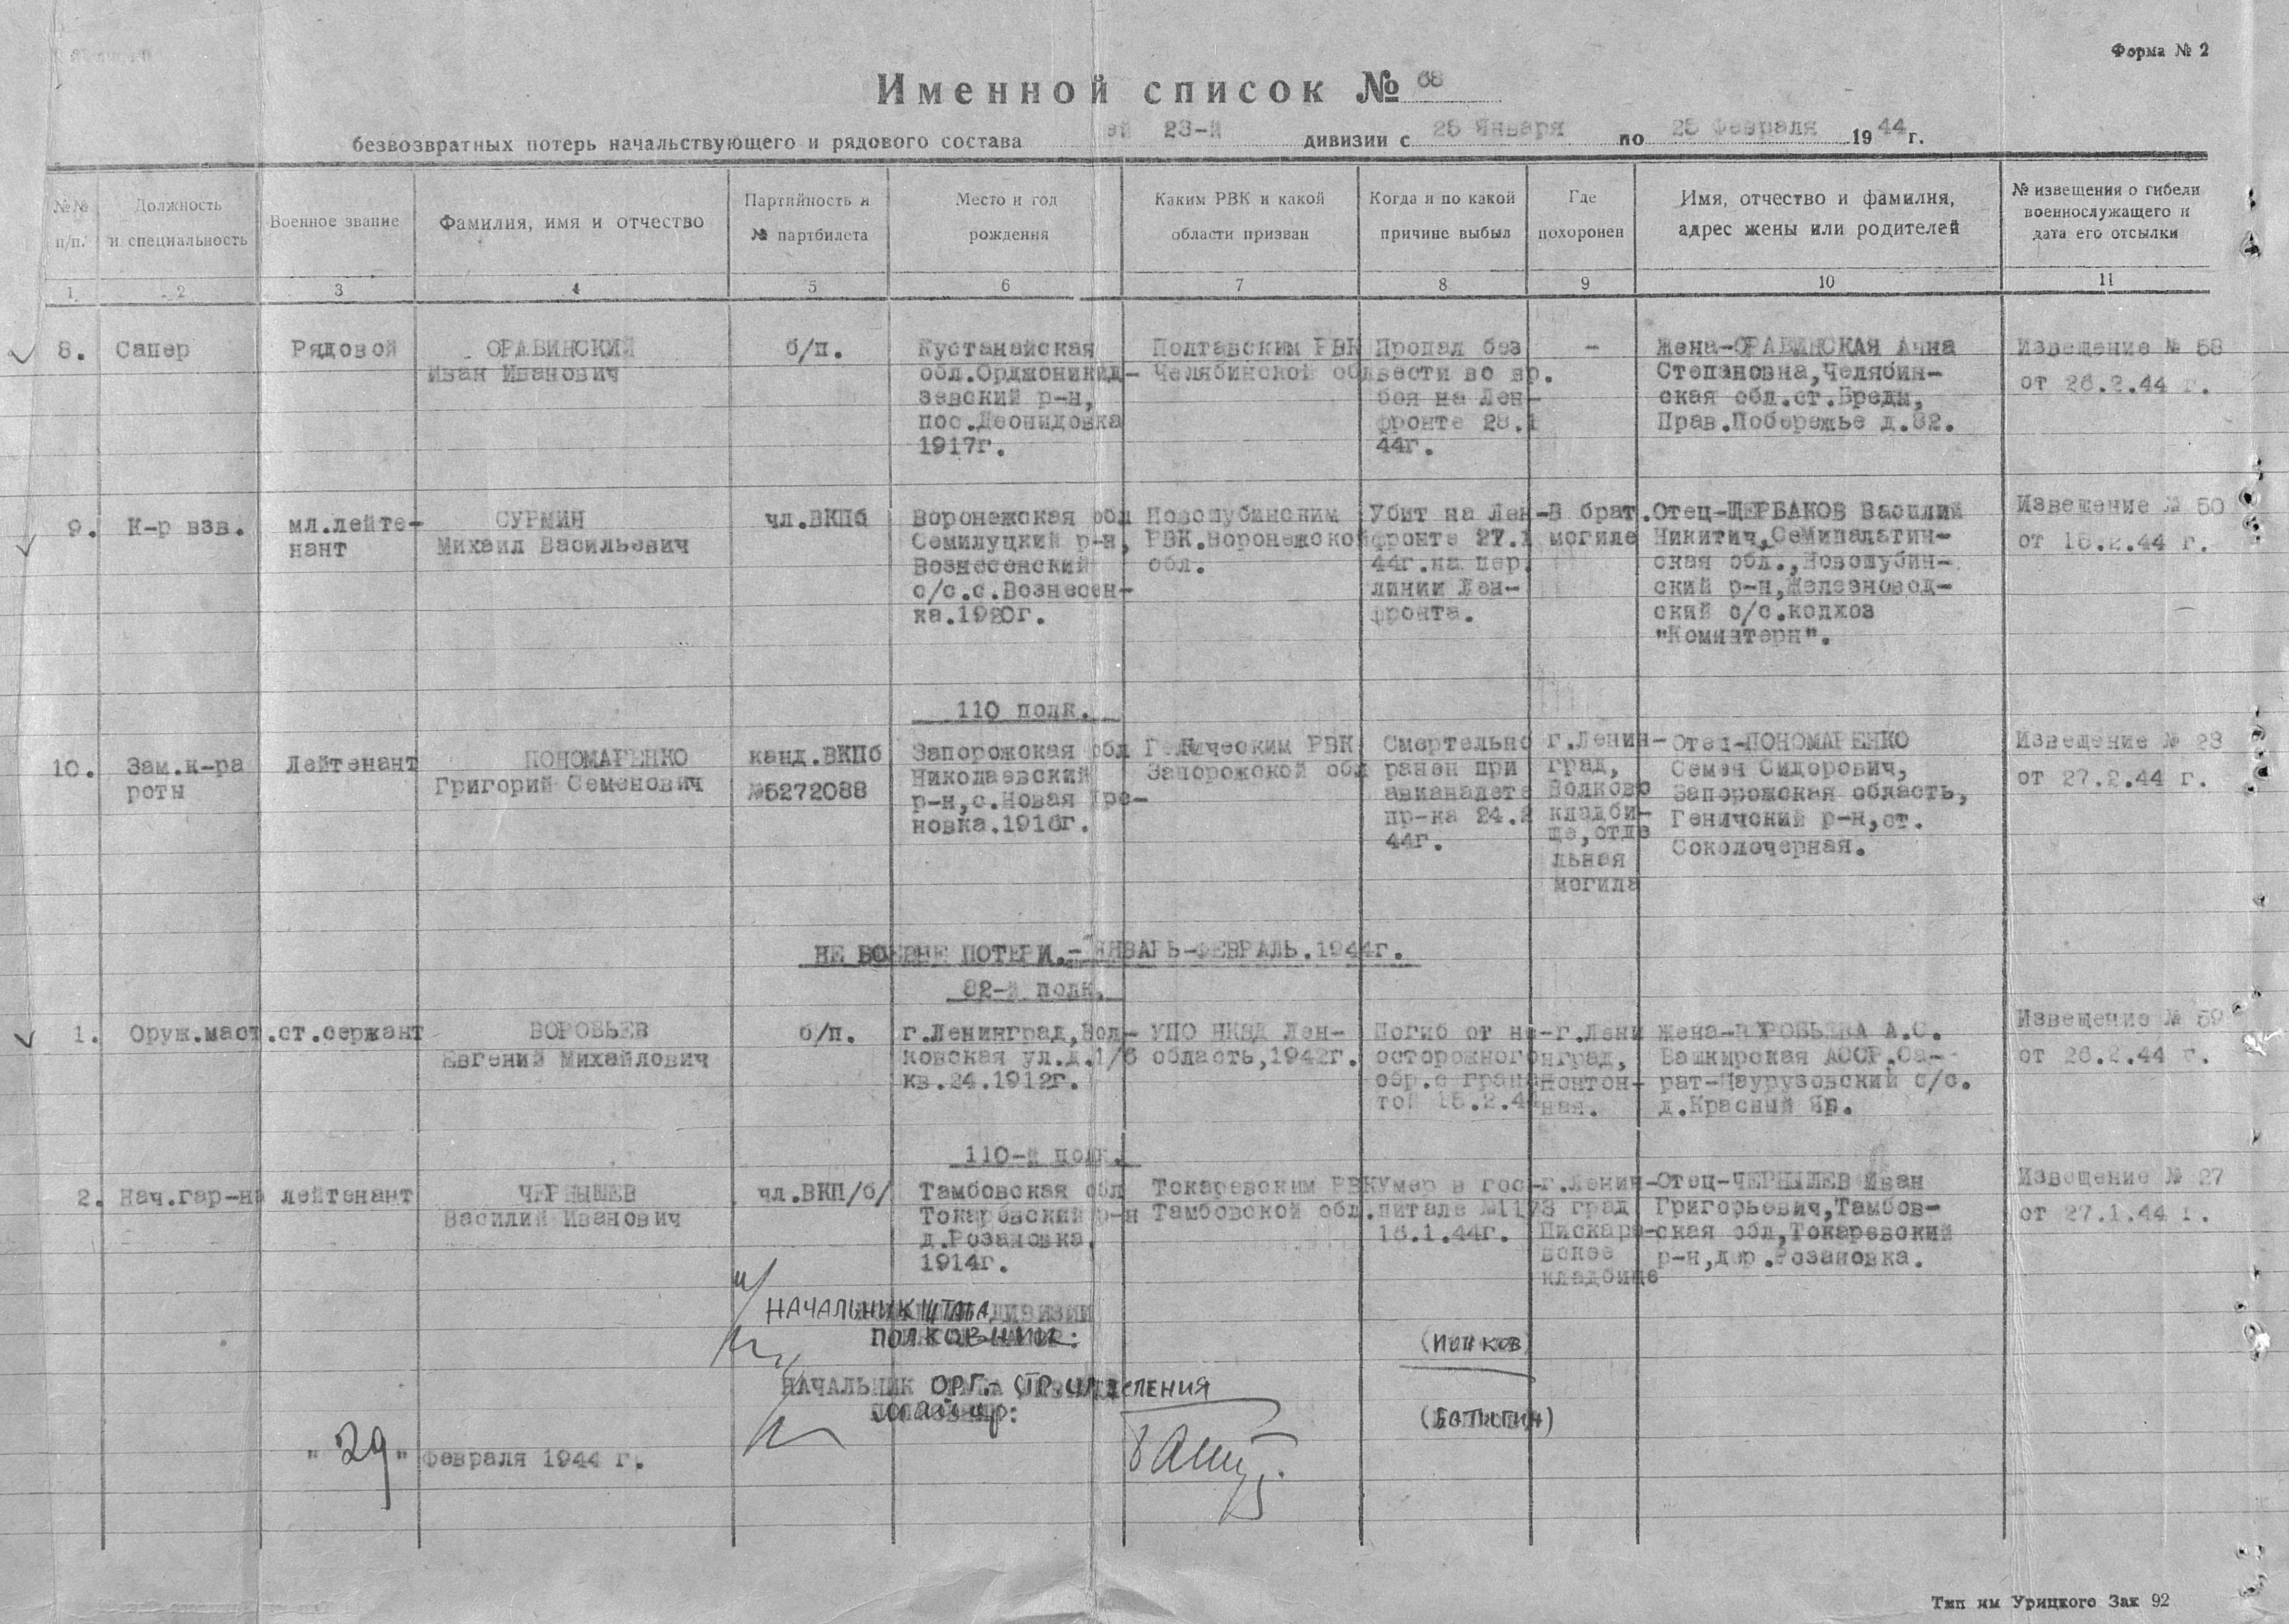 Форма № 2
Именной список № 68
безвозвратных потерь начальствующего и рядового состава ей 23-й дивизии с 25 Января по 25 Февраля 1944 г.
№№ п/п.
Должность и специальность
Военное звание
Фамилия, имя и отчество
Партийность и № партбилета
Место и год рождения
Каким РВК и какой области призван
Когда и по какой причине выбыл
Где похоронен
Имя, отчество и фамилия, адрес жены или родителей
№ извещения о гибели военнослужащего и дата его отсылки
1 2 3 4 5 6 7 8 9 10 11
8. Сапер
Рядовой
ОРАВИНСКИЙ
Иван Иванович
б/п.
Кустанайская
обл.Орджоникид-
зевский р-н,
пос.Леонидовка
1917г.
Полтавским РВК
Челябинской обл
Пропал без
вести во вр.
боя на Лен-
фронте 28.1
44г.
-
Жена-ОРАВИНСКАЯ Анна
Степановна,Челябин-
ская обл.ст.Бреды,
Прав.Побережье д.82.
Извещение № 58
от 26.2.44 г.
9. К-р взв.
мл.лейте-
нант
СУРМИН
Михаил Васильевич
чл.ВКПб
Воронежская обл
Семилуцкий р-н,
Вознесенский
с/с.с.Вознесен-
ка.1920г.
Новошубинским
РВК.Воронежской
обл.
Убит на Лен-
фронте 27.1
44г.на пер.
линии Лен-
фронта.
В брат.
могиле
Отец-ЩЕРБАКОВ Василий
Никитич,Семипалатин-
ская обл.,Новошубин-
ский р-н,Железновод-
ский с/с.колхоз
"Коминтерн".
Извещение № 50
от 18.2.44 г.
110 полк.
10. Зам.к-ра
роты
Лейтенант
ПОНОМАРЕНКО
Григорий Семенович
канд.ВКПб
№5272088
Запорожская обл
Николаевский
р-н,с.Новая Гре-
новка.1916г.
Геническим РВК
Запорожской обл
Смертельно
ранен при
авианалете
пр-ка 24.2
44г.
г.Ленин-
град,
Волково
кладби-
ще,отде
льная
могила
Отец-ПОНОМАРЕНКО
Семен Сидорович,
Запорожская область,
Геничский р-н,ст.
Соколочерная.
Извещение № 28
от 27.2.44 г.
НЕ БОЕВЫЕ ПОТЕРИ.-ЯНВАРЬ-ФЕВРАЛЬ.1944г.
82-й полк.
1. Оруж.маст.
ст.сержант
ВОРОБЬЕВ
Евгений Михайлович
б/п.
г.Ленинград,Вол-
ковская ул.д.1/6
кв.24.1912г.
УПО НКВД Лен-
область,1942г.
Погиб от не-
осторожного
обр.с грана
той 15.2.44
г.Лени
нград,
Понтон-
ная.
Жена-ВОРОБЬЕВА А.С.
Башкирская АССР.Са-
рат-Наурузовский с/с.
д.Красный Яр.
Извещение № 59
от 26.2.44 г.
110-й полк.
2. Нач.гар-на
лейтенант
ЧЕРНЫШЕВ
Василий Иванович
чл.ВКП/б/
Тамбовская обл
Токаревский р-н
д.Розановка.
1914г.
Токаревским РВК
Тамбовской обл.
Умер в гос-
питале №1173
16.1.44г.
г.Ленин-
град
Пискаре-
вское
кладбище
Отец-ЧЕРНЫШЕВ Иван
Григорьевич,Тамбов-
ская обл,Токаревский
р-н,дер.Розановка.
Извещение № 27
от 27.1.44 г.
НАЧАЛЬНИК ШТАБА ДИВИЗИИ
ПОЛКОВНИК:
НАЧАЛЬНИК ОРГ.-СТР.ОТДЕЛЕНИЯ
майор:
(БАТЫГИН)
"29" февраля 1944 г.
Тип им Урицкого Зак 92